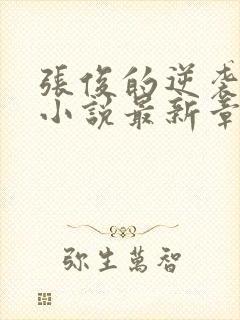 張俊的逆袭
小說最新章
弥生萬智